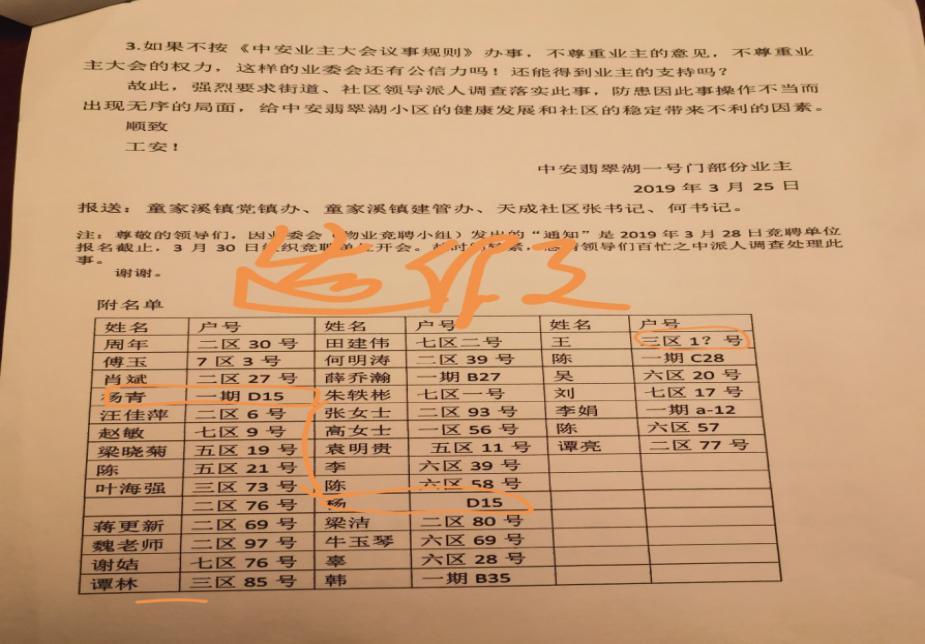 3.如果不按《中安业主大会议事规则》办事，不尊重业主的意见，不尊重业
主大会的权力，这样的业委会还有公信力吗！还能得到业主的支持吗？
故此，强烈要求街道、社区领导派人调查落实此事，防患因此事操作不当而
出现无序的局面，给中安翡翠湖小区的健康发展和社区的稳定带来不利的因素。
顺致
工安！
中安翡翠湖一号门部份业主
2019 年 3 月 25 日
报送：童家溪镇党镇办、童家溪镇建管办、天成社区张书记、何书记。
注：尊敬的领导们，因业委会（物业竞聘小组）发出的“通知”是 2019 年 3 月 28 日竞聘单位
报名截止，3 月 30 日组织竞聘单位开会。领导们百忙之中派人调查处理此
事。
谢谢。
造假了
附名单
姓名 户号 姓名 户号 姓名 户号
周年 二区 30 号 田建伟 七区二号 王 三区 1？号
傅玉 7 区 3 号 何明涛 二区 39 号 陈 一期 C28
肖斌 二区 27 号 薛乔瀚 一期 B27 吴 六区 20 号
杨青 一期 D15 朱轶彬 七区一号 刘 七区 17 号
汪佳萍 二区 6 号 张女士 二区 93 号 李娟 一期 a-12
赵敏 七区 9 号 高女士 一区 56 号 陈 六区 57
梁晓菊 五区 19 号 袁明贵 五区 11 号 谭亮 二区 77 号
陈 五区 21 号 李 六区 39 号
叶海强 三区 73 号 陈 六区 58 号
二区 76 号 杨 D15
蒋更新 二区 69 号 梁洁 二区 80 号
魏老师 二区 97 号 牛玉琴 六区 69 号
谢姞 七区 76 号 辜 六区 28 号
谭林 三区 85 号 韩 一期 B35